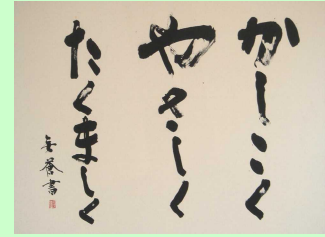 かしこく
やさしく
たくましく
無蒼書